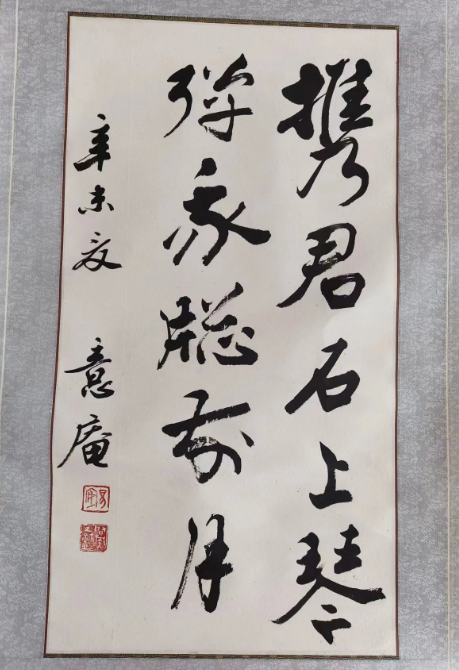 携君石上琴
弹我窗前月
辛未夏 意庵